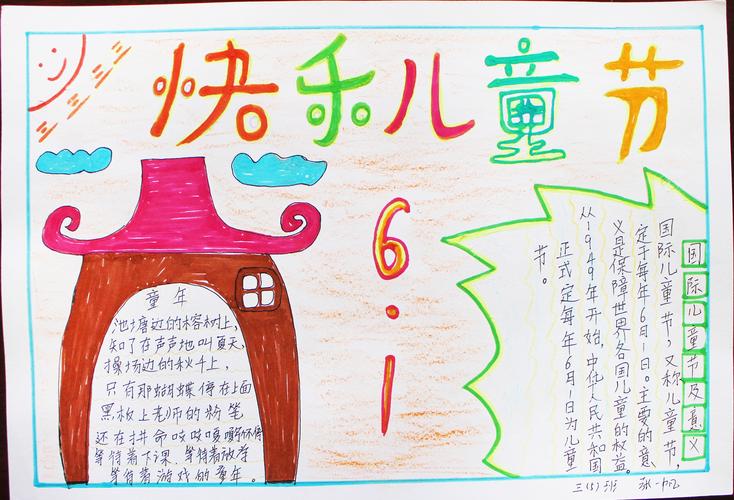 快乐儿童节
6.1
童年
池塘边的榕树上,
知了在声声地叫夏天,
操场边的秋千上,
只有那蝴蝶停在上面
黑板上老师的粉笔
还在拼命吱吱嘎嘎
等待着下课,等待着放学
等待着游戏的童年。
国际儿童节及意义
国际儿童节,又称儿童节,
定于每年6月1日。主要的意
义是保障世界各国儿童的权益。
从1949年开始,中华人民共和国
正式定每年6月1日为儿童
节。
三(5)班